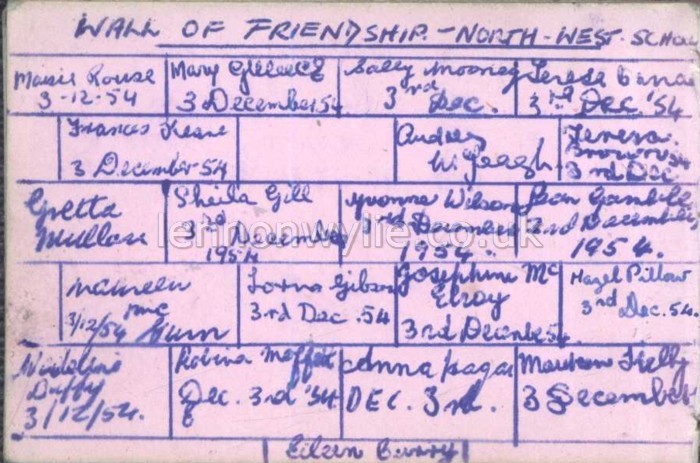 WALL OF FRIENDSHIP - NORTH-WEST SCHOOL
Maisie Rouse
3-12-54
Mary
3 December 54
Sally Mooney
3rd Dec.
Teresa
3rd Dec '54
Frances Keane
3 December 54
Audrey
W.
Teresa
3rd Dec
Gretta
Mullan
Sheila Gill
3rd
December
1954
Yvonne Wilson
3rd December
1954.
Jean Gamble
2nd December
1954.
Maureen
Mc
3/12/54
Lorna Gibson
3rd Dec. 54
Josephine Mc
Elroy
3rd December 54.
Hazel Pillow
3rd Dec. 54.
Madeline
Duffy
3/12/54.
Robina Moffett
Dec. 3rd '54
Anna
DEC. 3rd.
Maureen
3 December
Eileen Berry
lennonwylie.co.uk